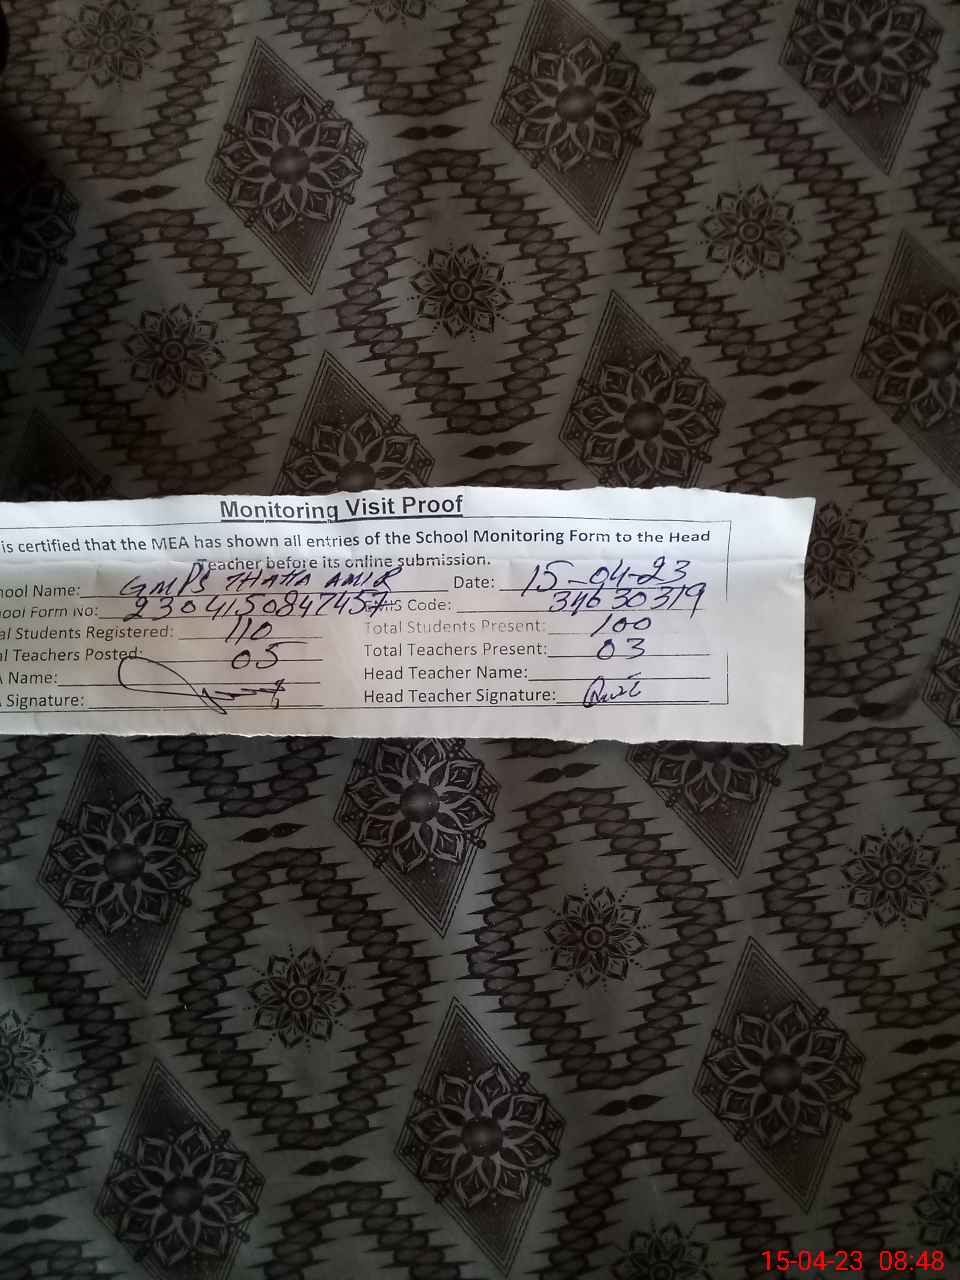 Monitoring Visit Proof
is certified that the MEA has shown all entries of the School Monitoring Form to the Head
Teacher before its online submission.
hool Name: GMPS THATTA AMIR Date: 15-04-23
ool Form No: 2304150847457 Code: 34630319
al Students Registered: 110 Total Students Present: 100
al Teachers Posted: 05 Total Teachers Present: 03
Name: Head Teacher Name:
Signature: Head Teacher Signature:
15-04-23 08:48